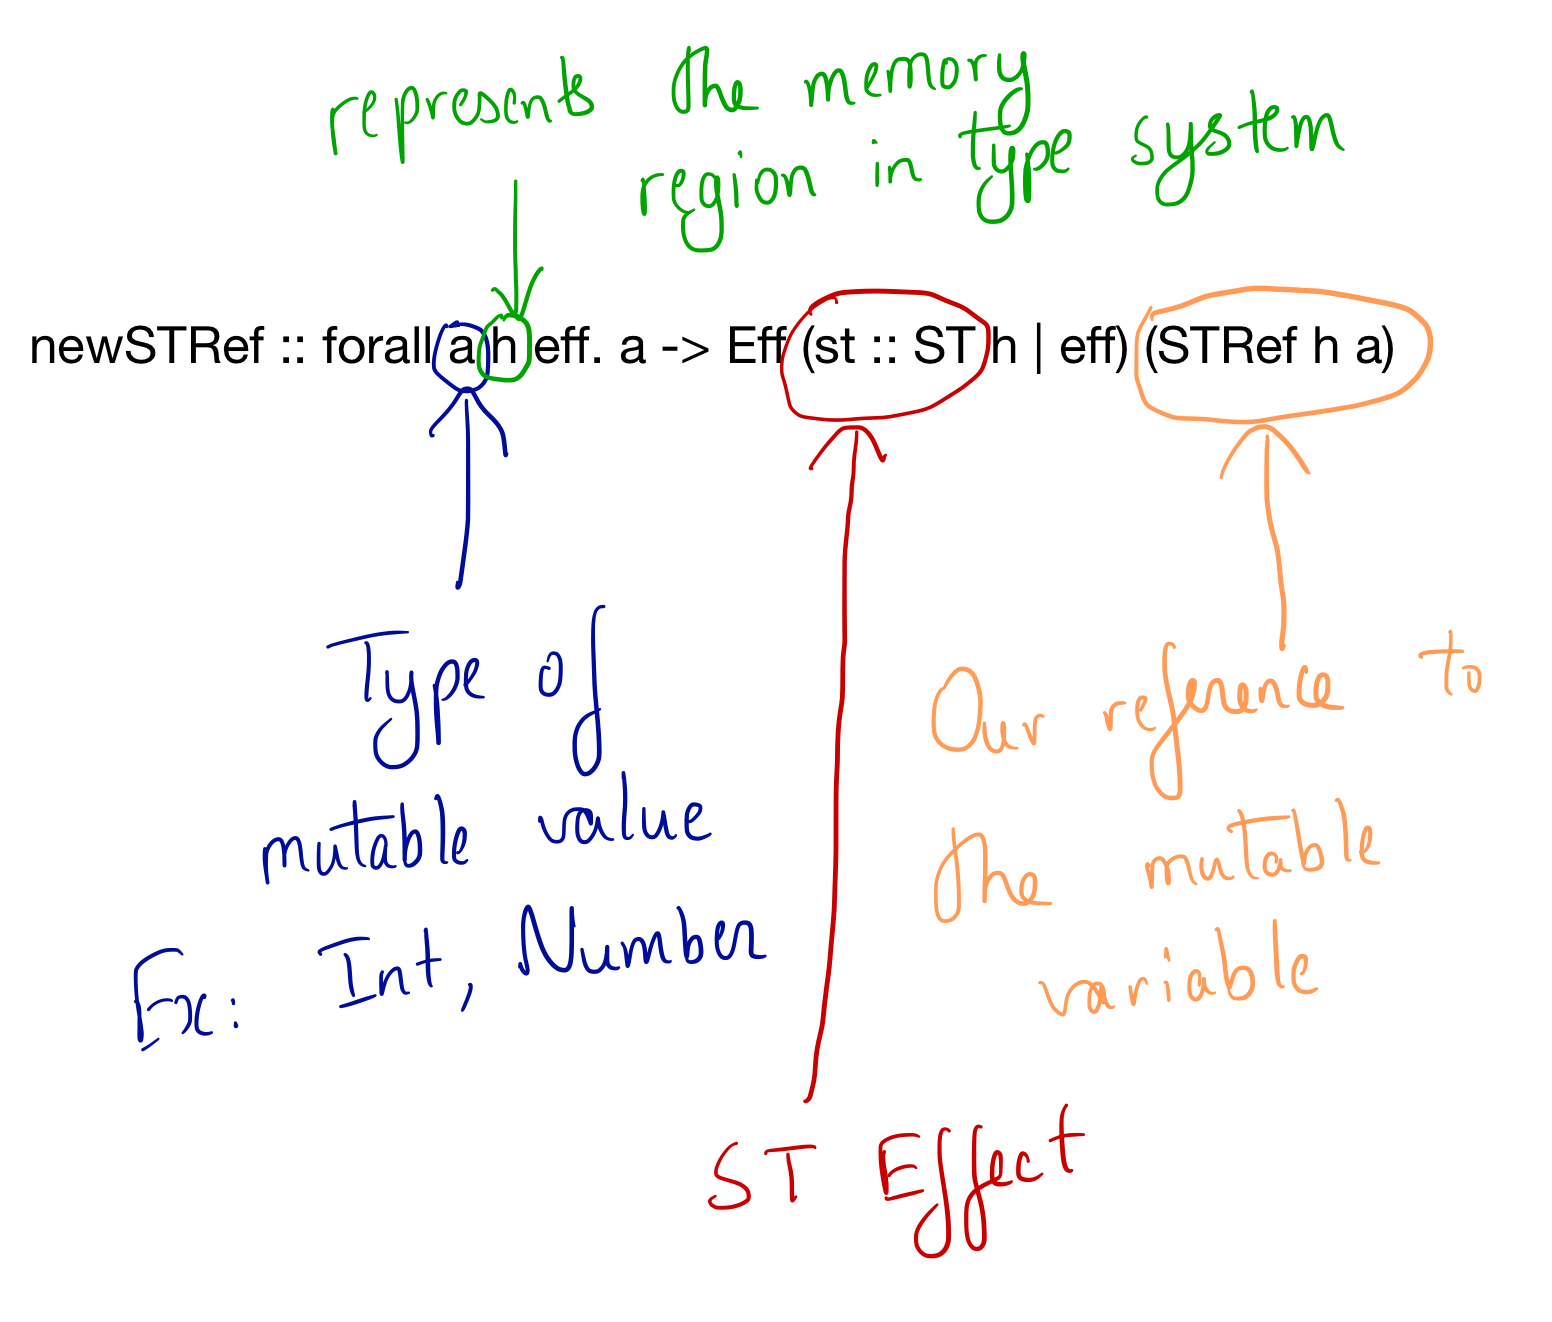 represents the memory
region in type system
newSTRef :: forall a h eff. a -> Eff (st :: ST h | eff) (STRef h a)
Type of
mutable value
Ex: Int, Number
Our reference to
the mutable
variable
ST Effect